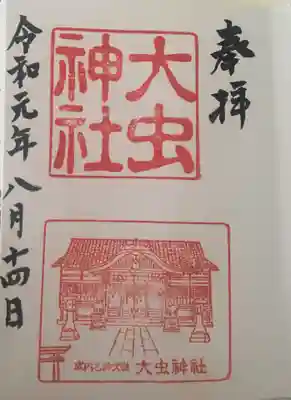 奉拝
大虫
神社
大虫神社
令和元年八月十四日